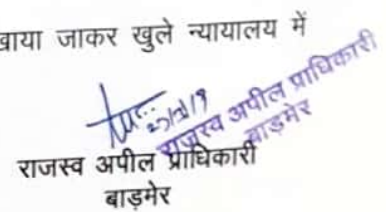 खाया जाकर खुले न्यायालय में
राजस्व अपील प्राधिकारी
बाड़मेर
राजस्व अपील प्राधिकारी
बाड़मेर